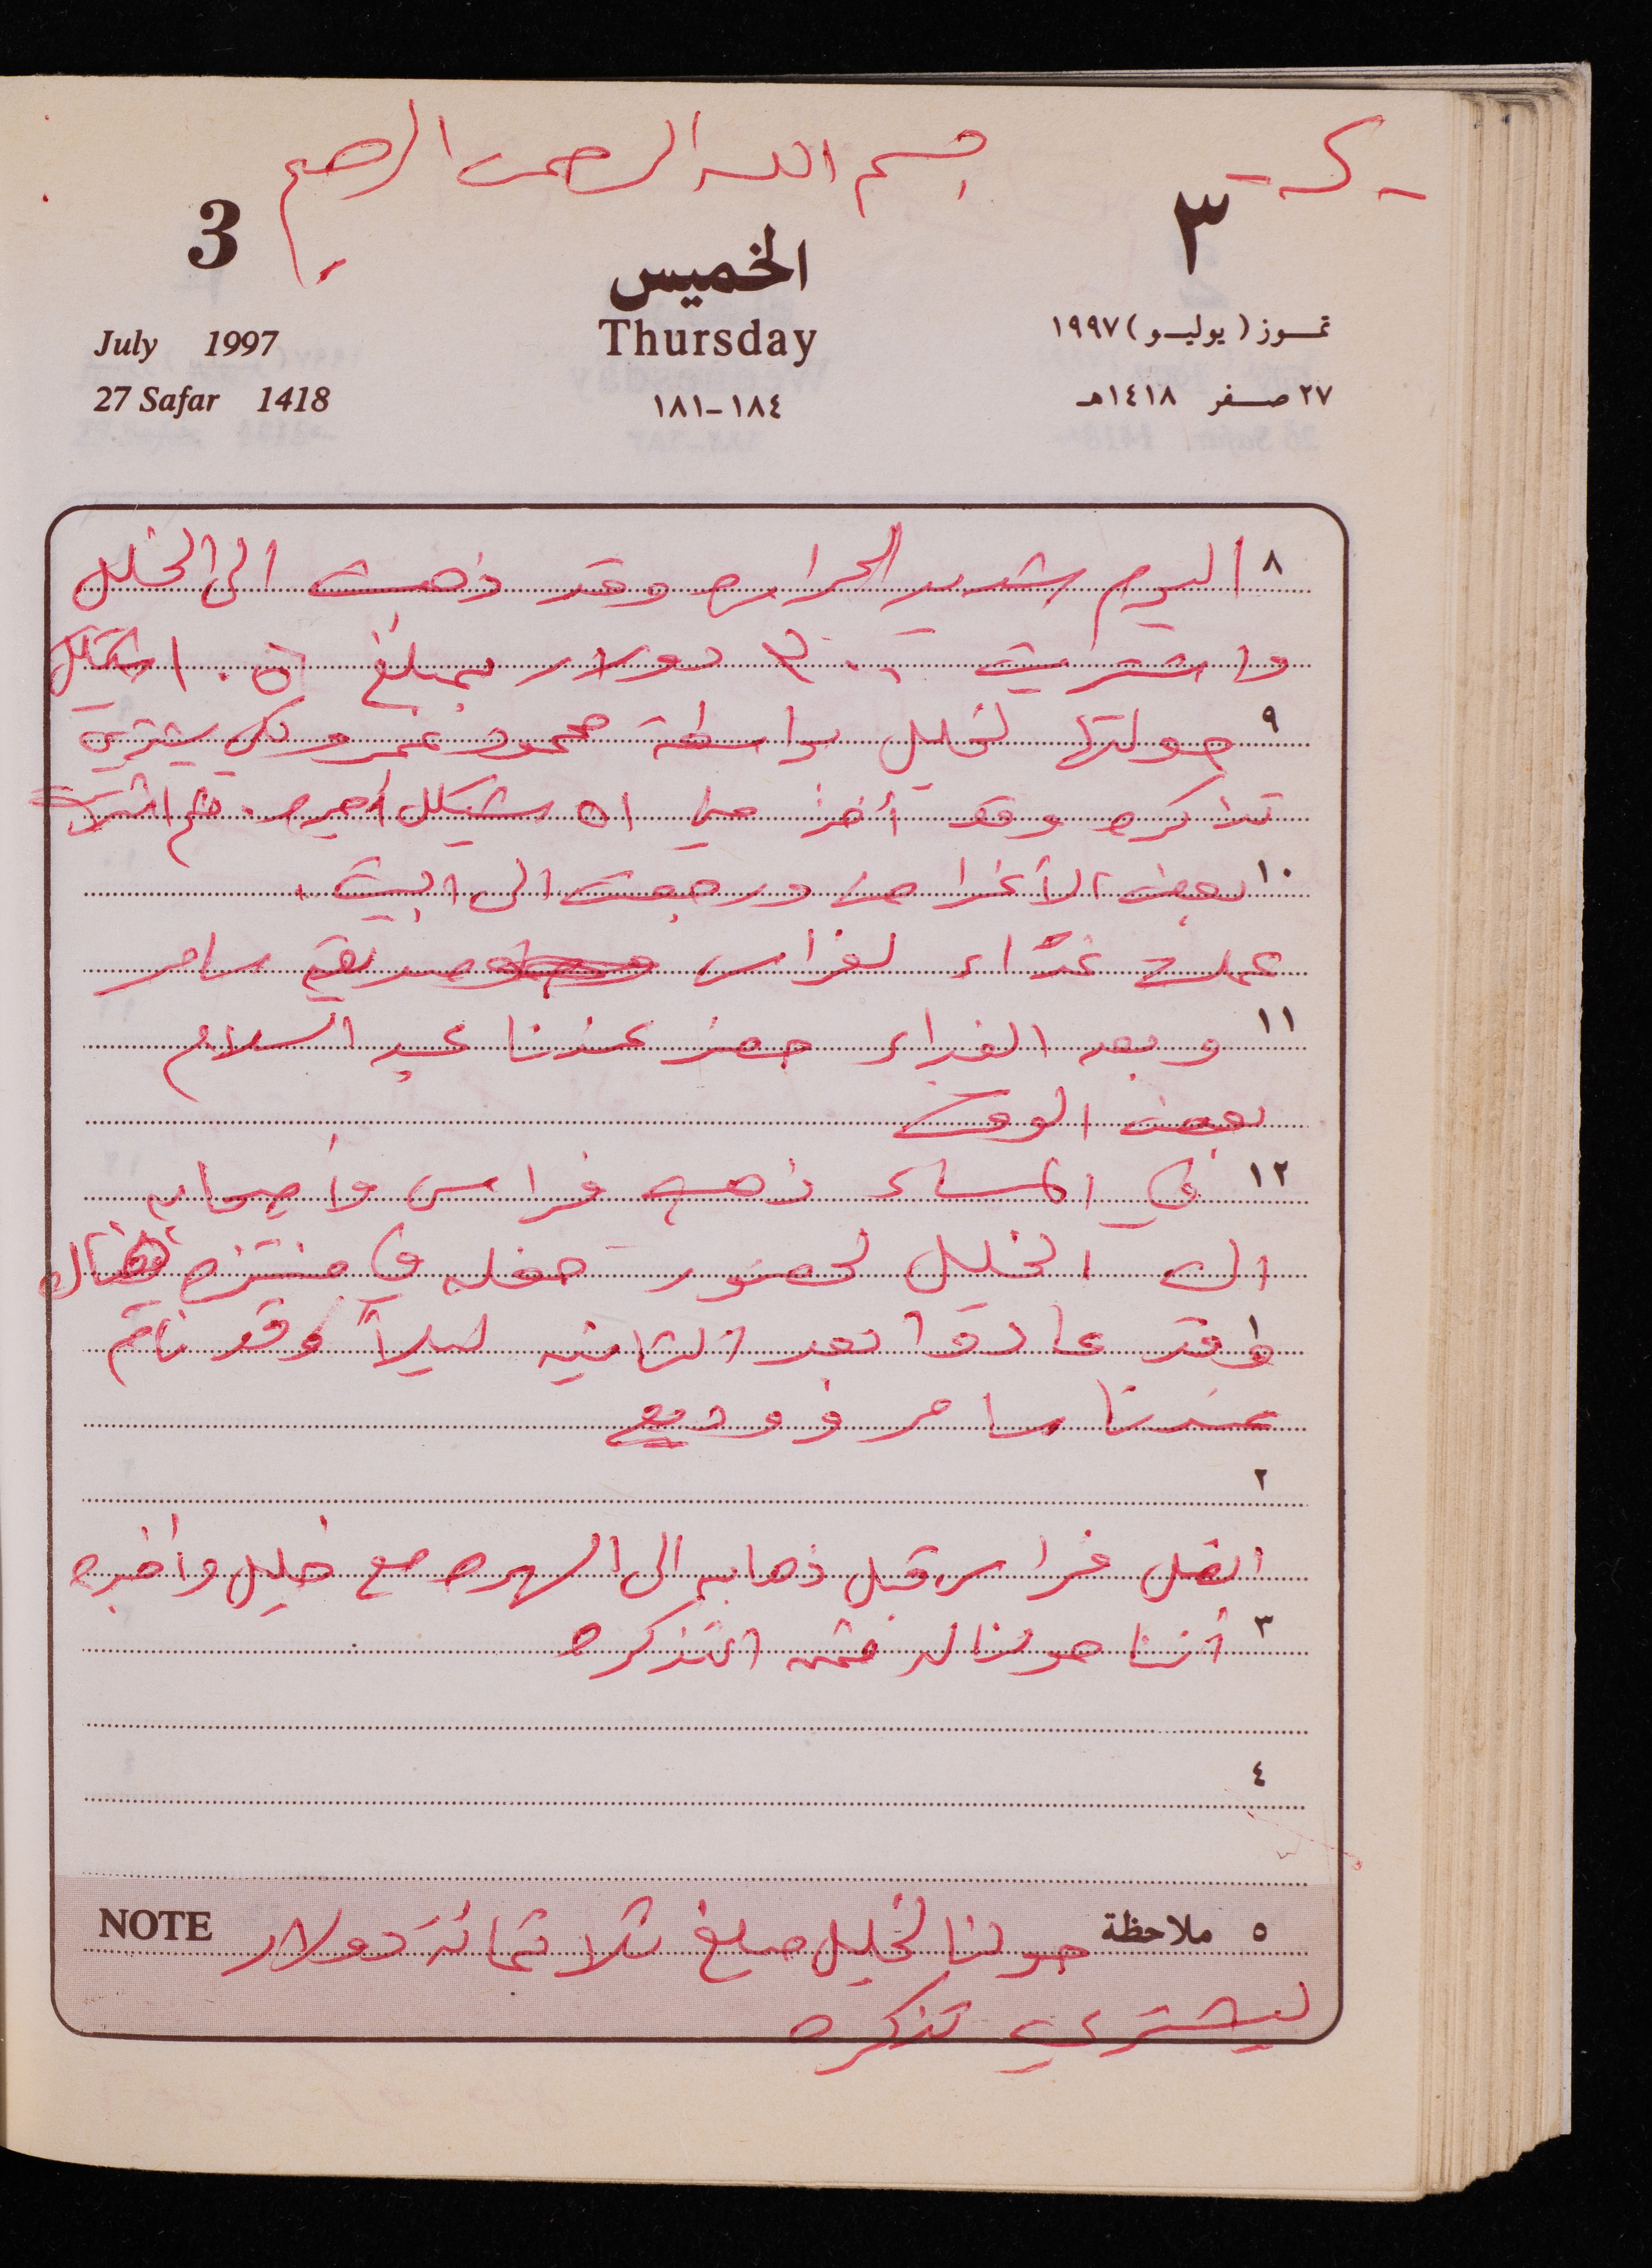 بسم الله الرحمن الرحيم
3
٣
الخميس
July 1997
Thursday
تموز (يوليو) ١٩٩٧
27 Safar 1418
١٨٤-١٨١
٢٧ صفر ١٤١٨هـ
٨ اليوم شديد الحراره وقد ذهبت الى الخليل
واشتريت ٣٠٠ دولار بمبلغ
٩ حولتها لخليل بواسطة محمود عمرو لكي يشتري
تذاكره وقد أخذ مني ١٥ شيكل أجره. ثم اشتريت
١٠ بعض الأغراض ورجعت الى البيت.
عملت غداء لفراس وصديقه سامر
١١ وبعد الغداء حضر عندنا عبد السلام
بعض الوقت
١٢ في المساء ذهب فراس وأصحابه
الى الخليل لحضور حفله في منتزه
١ وقد عادوا بعد الثانيه ليلاً وقد نام
عندنا سامر ووديع
٢
اتصل فراس قبل ذهابه الى السهره مع خليل وأخبره
٣ أننا حولنا له ثمن التذكره
٤
NOTE ٥ ملاحظة حولنا لخليل مبلغ ثلاثمائة دولار
ليشتري تذكره